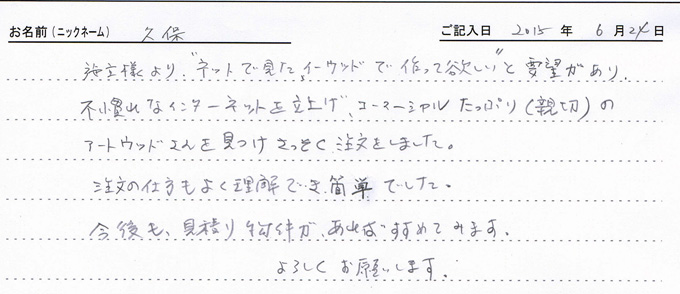 お名前(ニックネーム) 久保 ご記入日 2015 年 6 月 24 日
施主様より、"ネットで見た、イーウッドで作って欲しい"と要望があり、
不慣れなインターネットを立上げ、コマーシャルたっぷり(親切)の
アートウッドさんを見つけさっそく注文をしました。
注文の仕方もよく理解でき簡単でした。
今後も、見積り物件が、あればすすめてみます。
よろしくお願いします。